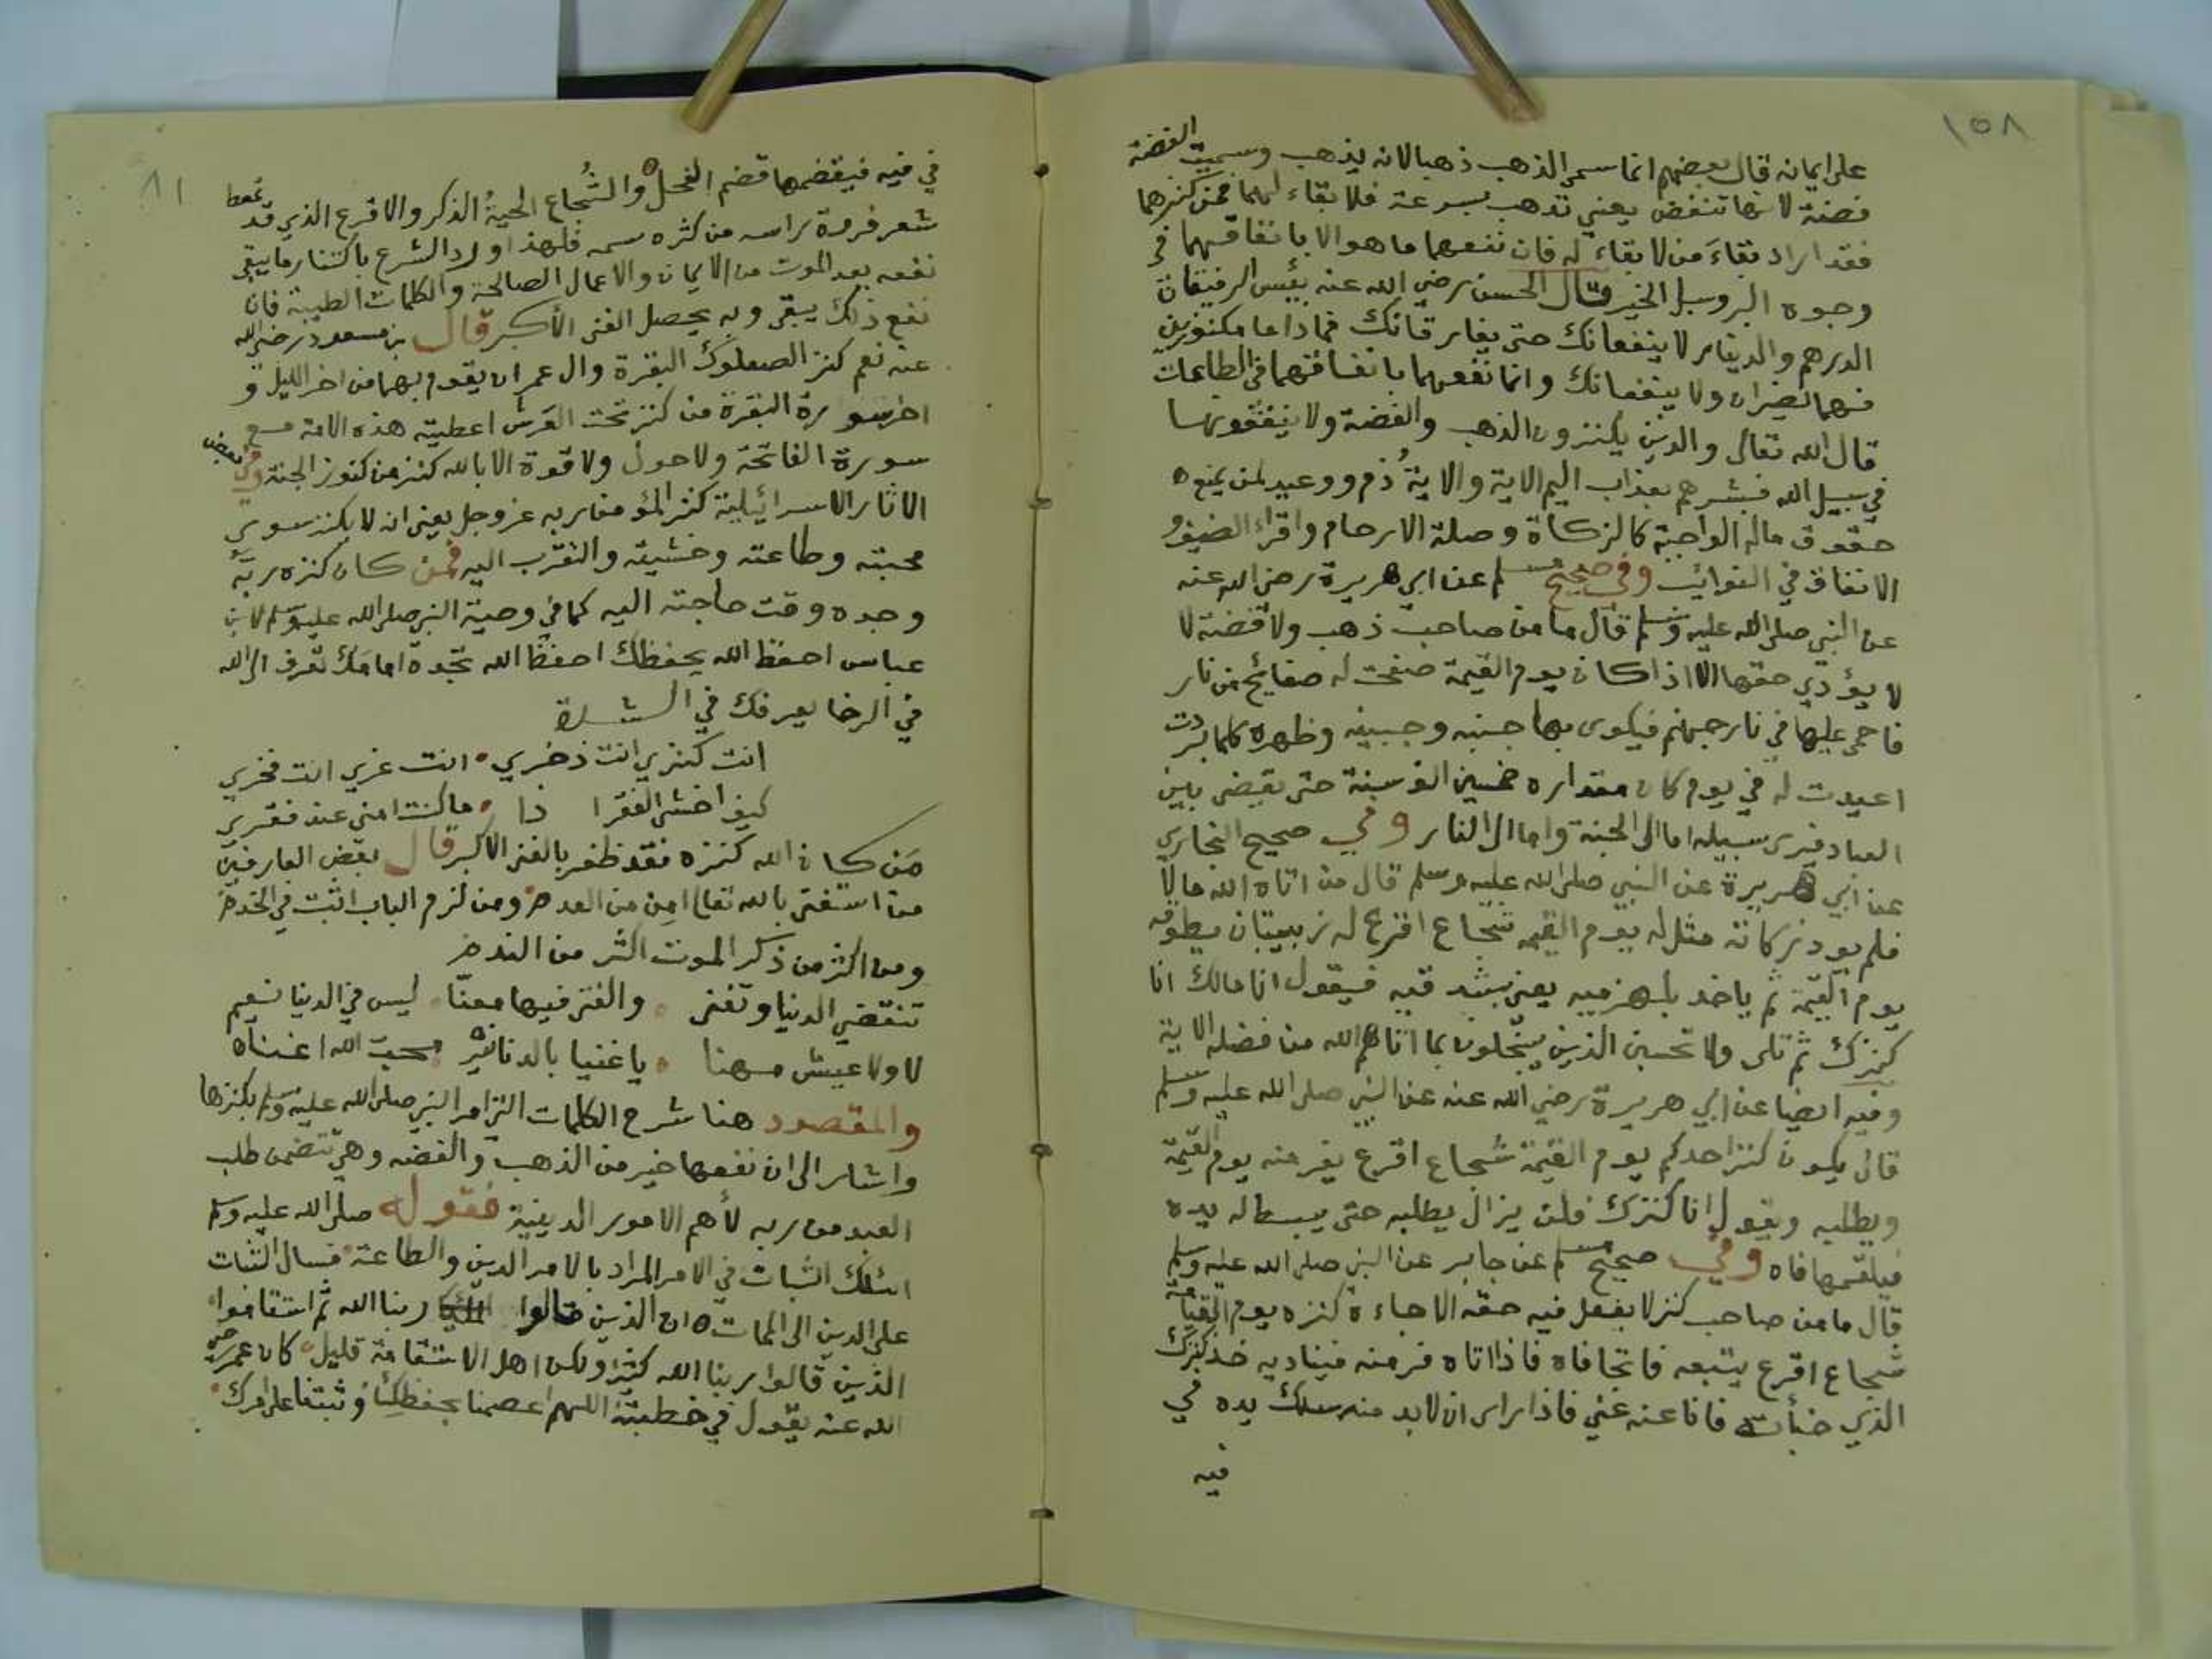 ١٥٨
على ايمانه قال بعضهم انما سمي الذهب ذهبا لانه يذهب وسميت الفضة
فضة لانها تنفض يعني تذهب بسرعة فلا بقاء لهما فمن كنزهما
فقد اراد بقاء من لا بقاء له فان نفعهما ما هو الا بانفاقهما في
وجوه البر وسبل الخير قال الحسن رضي الله عنه بئس الرفيقان
الدرهم والدينار لا ينفعانك حتى يفارقانك فما داما مكنوزين
فهما يضران ولا ينفعانك وانما نفعهما بانفاقهما في الطاعات
قال الله تعالى والذين يكنزون الذهب والفضة ولا ينفقونها
في سبيل الله فبشرهم بعذاب اليم الاية والاية ذم ووعيد لمن يمنع
حقوق ماله الواجبة كالزكاة وصلة الارحام واقراء الضيف و
الانفاق في النوائب وفي صحيح مسلم عن ابي هريرة رضي الله عنه
عن النبي صلى الله عليه وسلم قال ما من صاحب ذهب ولا فضة لا
لا يؤدي حقها الا اذا كان يوم القيمة صفحت له صفائح من نار
فاحمي عليها في نار جهنم فيكوى بها جنبه وجبينه وظهره كلما بردت
اعيدت له في يوم كان مقداره خمسين الف سنة حتى يقضى بين
العباد فيرى سبيله اما الى الجنة واما الى النار وفي صحيح البخاري
عن ابي هريرة عن النبي صلى الله عليه وسلم قال من اتاه الله مالا
فلم يود زكاته مثل له يوم القيمه شجاع اقرع له زبيبتان يطوقه
يوم القيمة ثم ياخذ بلهزميه يعني بشدقيه فيقول انا مالك انا
كنزك ثم تلى ولا تحسبن الذين يبخلون بما اتاهم الله من فضله الاية
وفيه ايضا عن ابي هريرة رضي الله عنه عن النبي صلى الله عليه وسلم
قال يكون كنز احدكم يوم القيمة شجاع اقرع يفر منه يوم القيمة
ويطلبه ويقول انا كنزك فلن يزال يطلبه حتى يبسط له يده
فيلقمها فاه وفي صحيح مسلم عن جابر عن النبي صلى الله عليه وسلم
قال ما من صاحب كنز لا يفعل فيه حقه الا جاءه كنزه يوم القيامة
شجاع اقرع يتبعه فاتحا فاه فاذا اتاه فر منه فيناديه خذ كنزك
الذي خبأته فانا عنه غني فاذا راى ان لا بد منه سلك يده في
فيه
٨١
في فيه فيقضمها قضم الفحل والشجاع الحية الذكر والاقرع الذي قد تمعط
شعر فروة راسه من كثره سمه فلهذا ورد الشرع باكتناز ما يبقى
نفعه بعد الموت من الايمان والاعمال الصالحة والكلمات الطيبة فان
نفع ذلك يبقى وبه يحصل الغنى الاكبر قال بن مسعود رضي الله
عنه نعم كنز الصعلوك البقرة وال عمران يقوم بهما من اخر الليل و
اخر سورة البقرة من كنز تحت العرش اعطيته هذه الامة مع
سورة الفاتحة ولا حول ولا قوة الا بالله كنز من كنوز الجنة وفي بعض
الاثار الاسرائيلية كنز المؤمن ربه عز وجل يعني انه لا يكنز سوى
محبته وطاعته وخشيته والتقرب اليه فمن كان كنزه ربه
وجده وقت حاجته اليه كما في وصية النبي صلى الله عليه وسلم لابن
عباس احفظ الله يحفظك احفظ الله تجده امامك تعرف الى الله
في الرخا يعرفك في الشدة
انت كنزي انت ذخري • انت عزي انت فخري
كيف اخشى الفقرا ذا • ما كنت امني عند فقري
من كان الله كنزه فقد ظفر بالغنى الاكبر قال بعض العارفين
من استغنى بالله تعالى امن من العدم ومن لزم الباب اثبت في الخدم
ومن اكثر من ذكر الموت اكثر من الندم
تنقضي الدنيا وتفنى • والفتى فيها معنّا • ليس في الدنيا نعيم
لا ولا عيش مهنا • يا غنيا بالدنانير • محب الله اغناه
والمقصود هنا شرح الكلمات التي امر النبي صلى الله عليه وسلم بكنزها
واشار الى ان نفعها خير من الذهب والفضه وهي تتضمن طلب
العبد من ربه لأهم الامور الدينية فقوله صلى الله عليه وسلم
اسئلك الثبات في الامر المراد بالامر الدين والطاعة فسال الثبات
على الدين الى الممات ان الذين قالوا ربنا الله ثم استقاموا
الذين قالوا ربنا الله كثير ولكن اهل الاستقامة قليل • كان عمر رضي
الله عنه يقول في خطبته اللهم اعصمنا بحفظك وثبتنا على امرك •